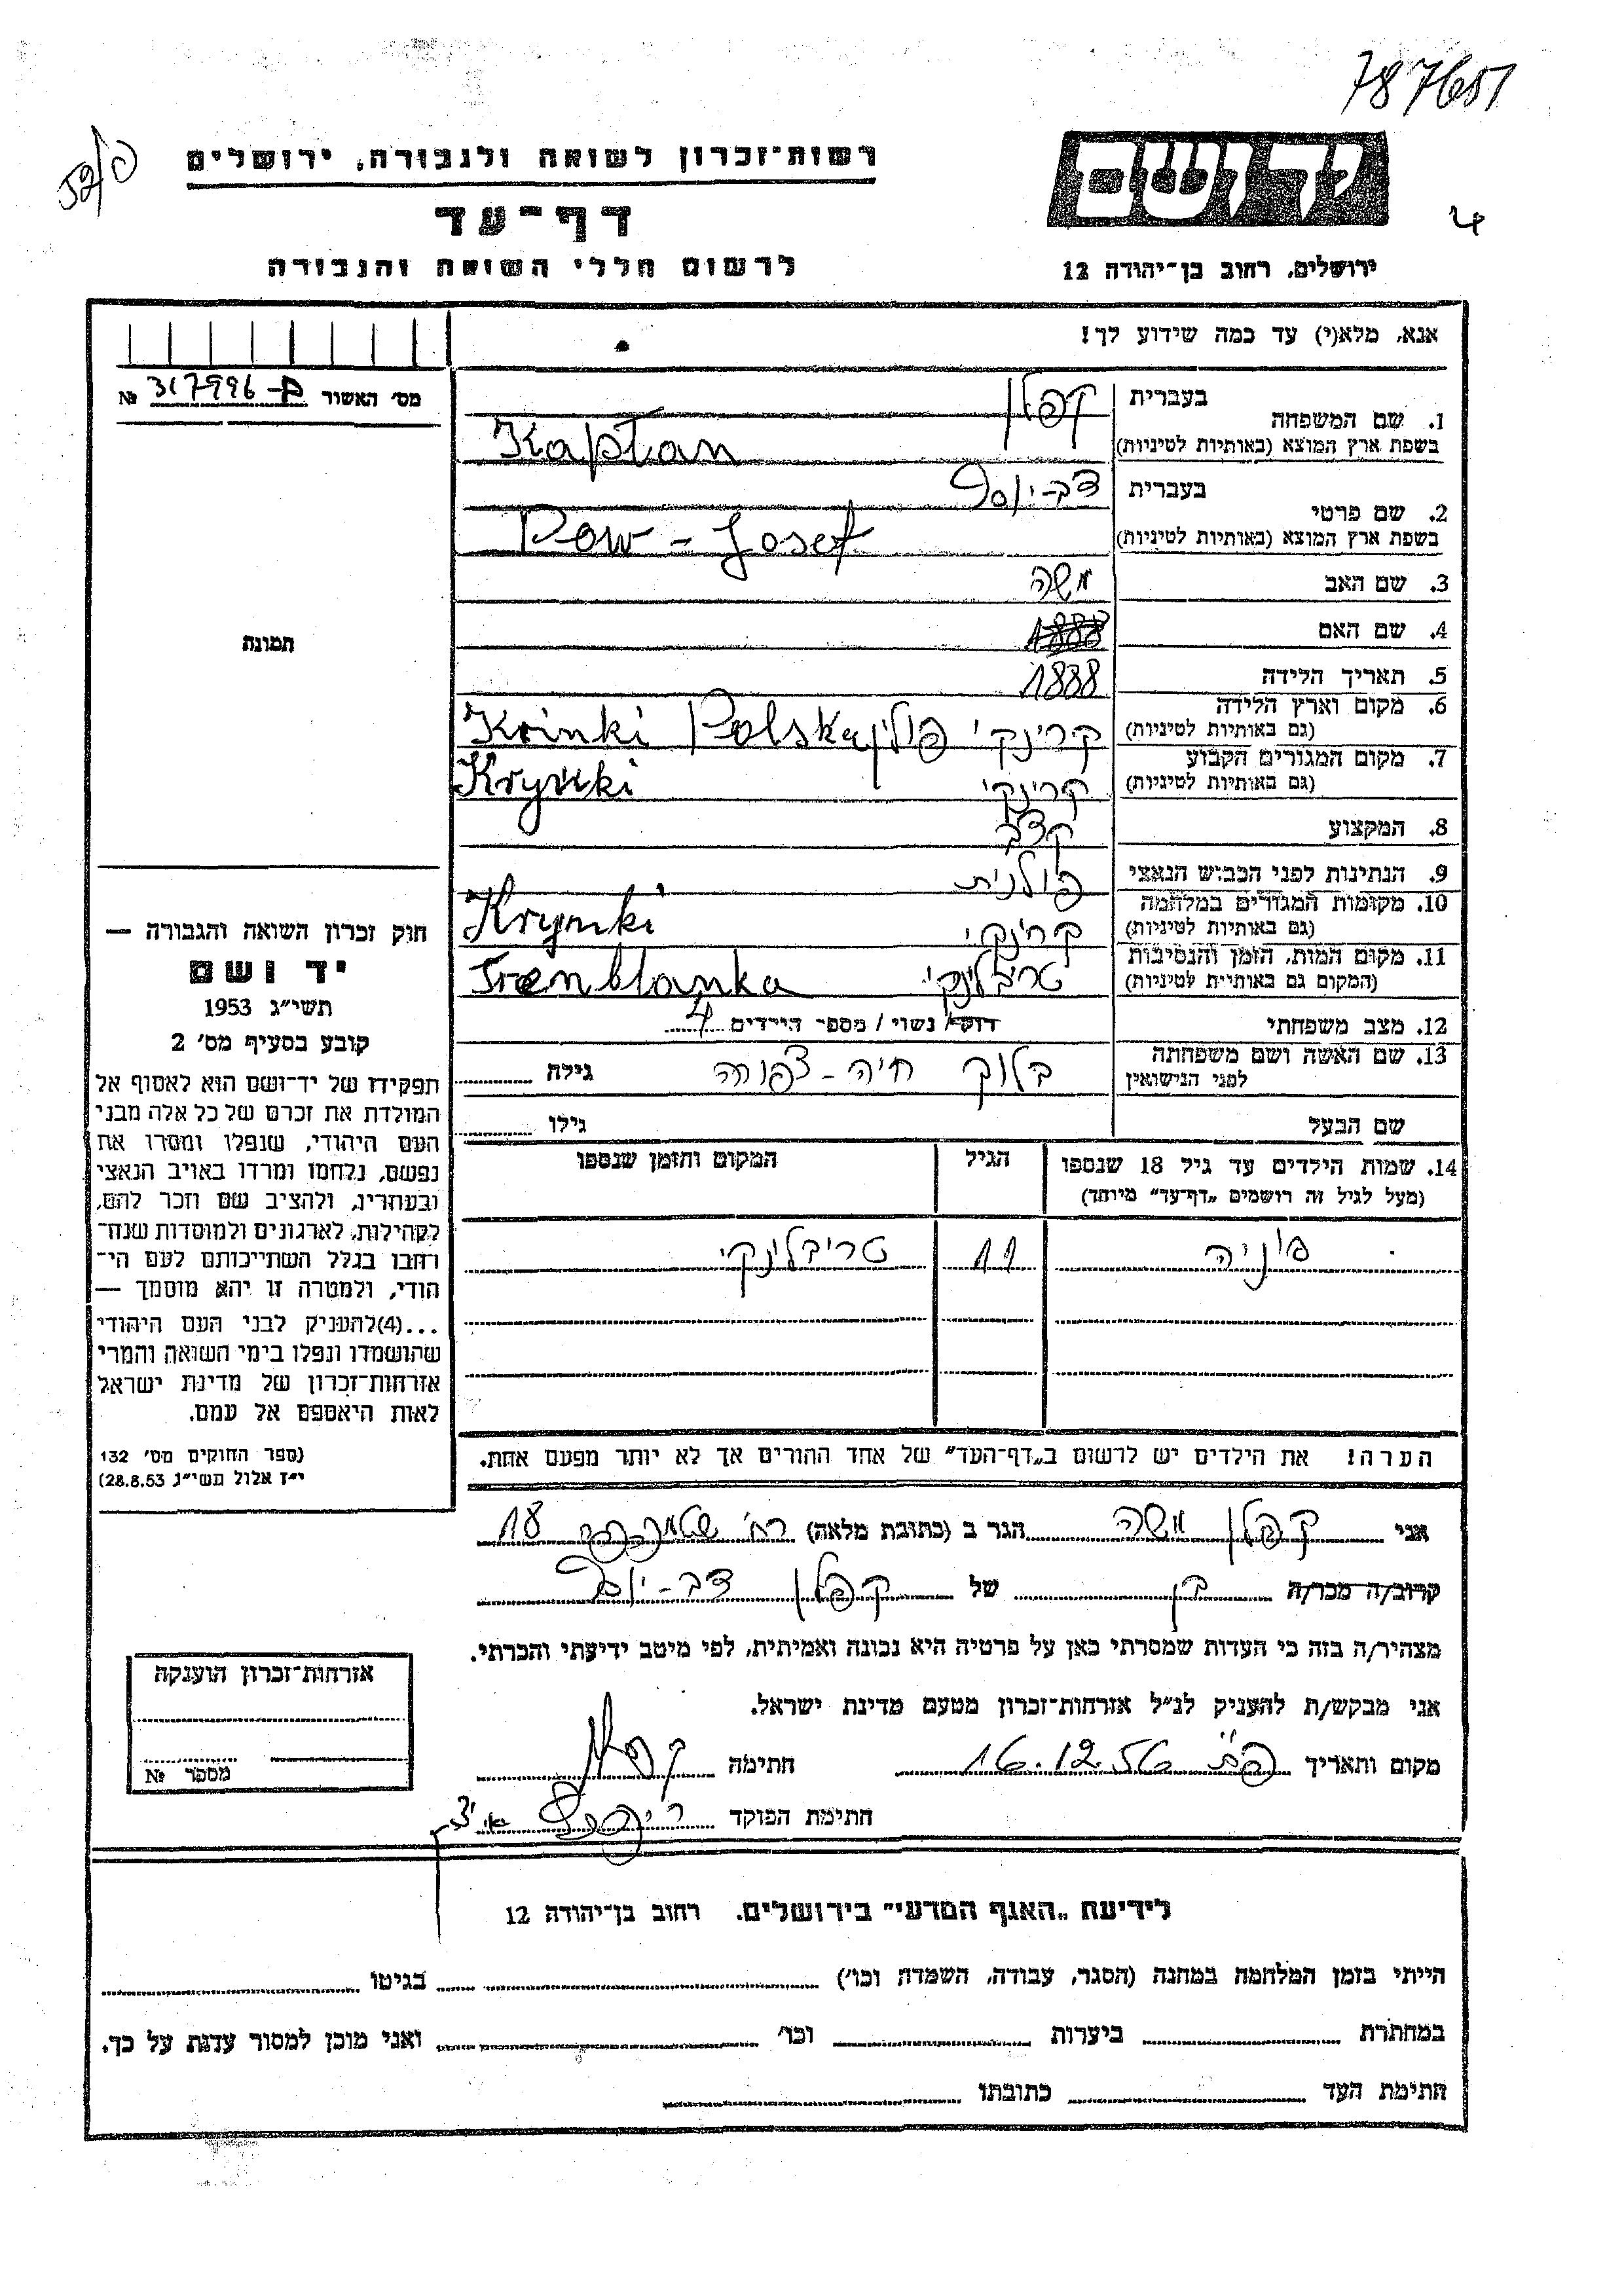 787651
רשות־זכרון לשואה ולגבורה, ירושלים
יד ושם
דף־עד
לרשום חללי השואה והגבורה
ירושלים, רחוב בן־יהודה 12
אנא, מלא(י) עד כמה שידוע לך!
מס׳ האשור 317996 №
1. שם המשפחה
בעברית קפלן
בשפת ארץ המוצא (באותיות לטיניות) Kapłan
2. שם פרטי
בעברית דב-יוסף
בשפת ארץ המוצא (באותיות לטיניות) Dow - Josef
3. שם האב משה
4. שם האם 1888
5. תאריך הלידה 1888
6. מקום וארץ הלידה
(גם באותיות לטיניות) קרינקי פולין Krinki Polska
7. מקום המגורים הקבוע
(גם באותיות לטיניות) קרינקי Krynki
8. המקצוע קצב
9. הנתינות לפני הכבוש הנאצי פולנית
10. מקומות המגורים במלחמה
(גם באותיות לטיניות) קרינקי Krynki
11. מקום המות, הזמן והנסיבות
(המקום גם באותיות לטיניות) טרבלינקי Tremblanka
12. מצב משפחתי רווק / נשוי / מספר הילדים 4
13. שם האשה ושם משפחתה
לפני הנישואין בלוך חיה-צפורה גילה
שם הבעל גילו
14. שמות הילדים עד גיל 18 שנספו
(מעל לגיל זה רושמים „דף־עד״ מיוחד)
הגיל
המקום והזמן שנספו
פוניה 11 טריבלינקי
הערה! את הילדים יש לרשום ב„דף־העד״ של אחד ההורים אך לא יותר מפעם אחת.
תמונה
חוק זכרון השואה והגבורה —
יד ושם
תשי״ג 1953
קובע בסעיף מס׳ 2
תפקידו של יד־ושם הוא לאסוף אל
המולדת את זכרם של כל אלה מבני
העם היהודי, שנפלו ומסרו את
נפשם, נלחמו ומרדו באויב הנאצי
ובעוזריו, ולהציב שם וזכר להם,
לקהילות, לארגונים ולמוסדות שנח־
רבו בגלל השתייכותם לעם הי־
הודי, ולמטרה זו יהא מוסמך —
...(4)להעניק לבני העם היהודי
שהושמדו ונפלו בימי השואה והמרי
אזרחות־זכרון של מדינת ישראל
לאות היאספם אל עמם.
(ספר החוקים מס׳ 132
י״ז אלול תשי״ג 28.8.53)
אני קפלן משה הגר ב (כתובת מלאה) רח׳ 18
קרוב/ה מכר/ה בן של קפלן דב-יוסף
מצהיר/ה בזה כי העדות שמסרתי כאן על פרטיה היא נכונה ואמיתית, לפי מיטב ידיעתי והכרתי.
אני מבקש/ת להעניק לנ״ל אזרחות־זכרון מטעם מדינת ישראל.
מקום ותאריך 16.12.56 חתימה קפלן
חתימת הפוקד
אזרחות־זכרון הוענקה
מספר №
לידיעת „האגף המדעי״ בירושלים. רחוב בן־יהודה 12
הייתי בזמן המלחמה במחנה (הסגר, עבודה, השמדה וכו׳) בגיטו
במחתרת ביערות וכו׳ ואני מוכן למסור עדות על כך.
חתימת העד כתובתו